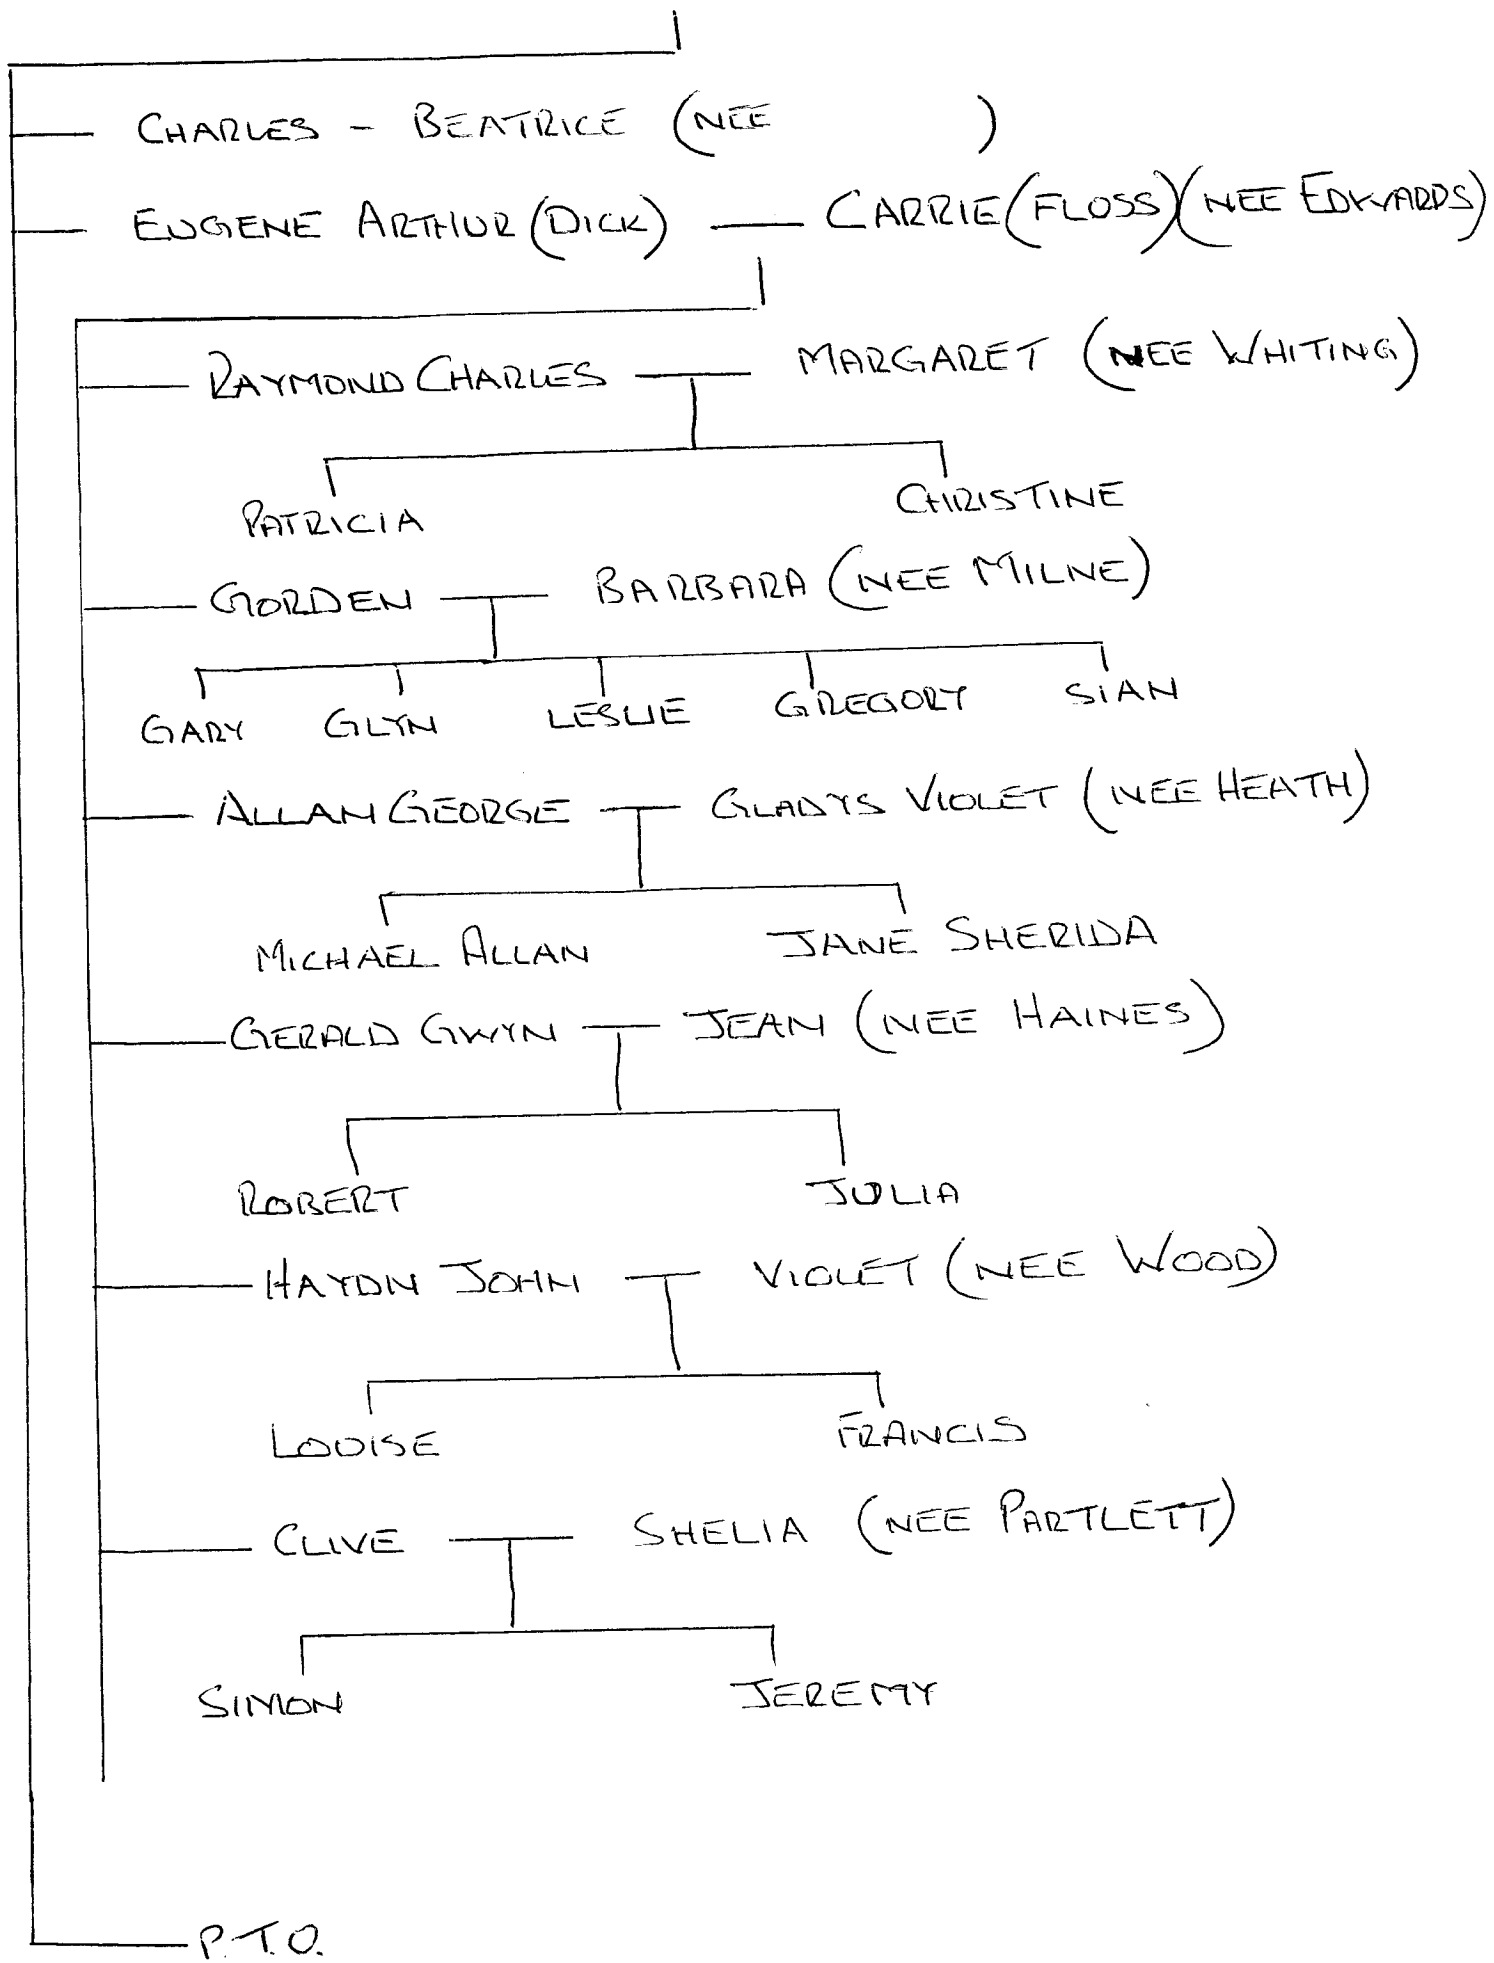 CHARLES - BEATRICE (NEE )
EUGENE ARTHUR (DICK) — CARRIE (FLOSS) (NEE EDWARDS)
RAYMOND CHARLES — MARGARET (NEE WHITING)
PATRICIA CHRISTINE
GORDEN — BARBARA (NEE MILNE)
GARY GLYN LESLIE GREGORY SIAN
ALLAN GEORGE — GLADYS VIOLET (NEE HEATH)
MICHAEL ALLAN JANE SHERIDA
GERALD GWYN — JEAN (NEE HAINES)
ROBERT JULIA
HAYDN JOHN — VIOLET (NEE WOOD)
LOUISE FRANCIS
CLIVE — SHELIA (NEE PARTLETT)
SIMON JEREMY
P.T.O.